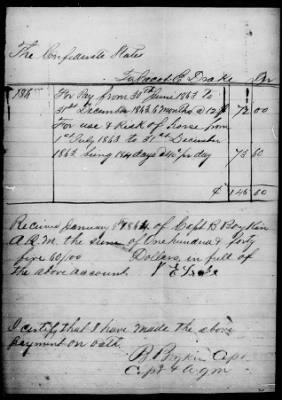 The Confederate States
To Jacob E Drake Dr
186 For Pay from 30th June 1863 to
31st December 1863 6 months @ 12 $ 72 00
For use & Risk of horse from
1st July 1863 to 31st December
1863 being 184 days @ 40¢ pr day 73 60
$ 145 60
Received January 1864 of Capt B Boykin
A.Q.M. the sum of One hundred & forty
five 60/100 Dollars, in full of
the above account J E Drake
I certify that I have made the above
payment on oath.
B Boykin Capt
Capt & AQM